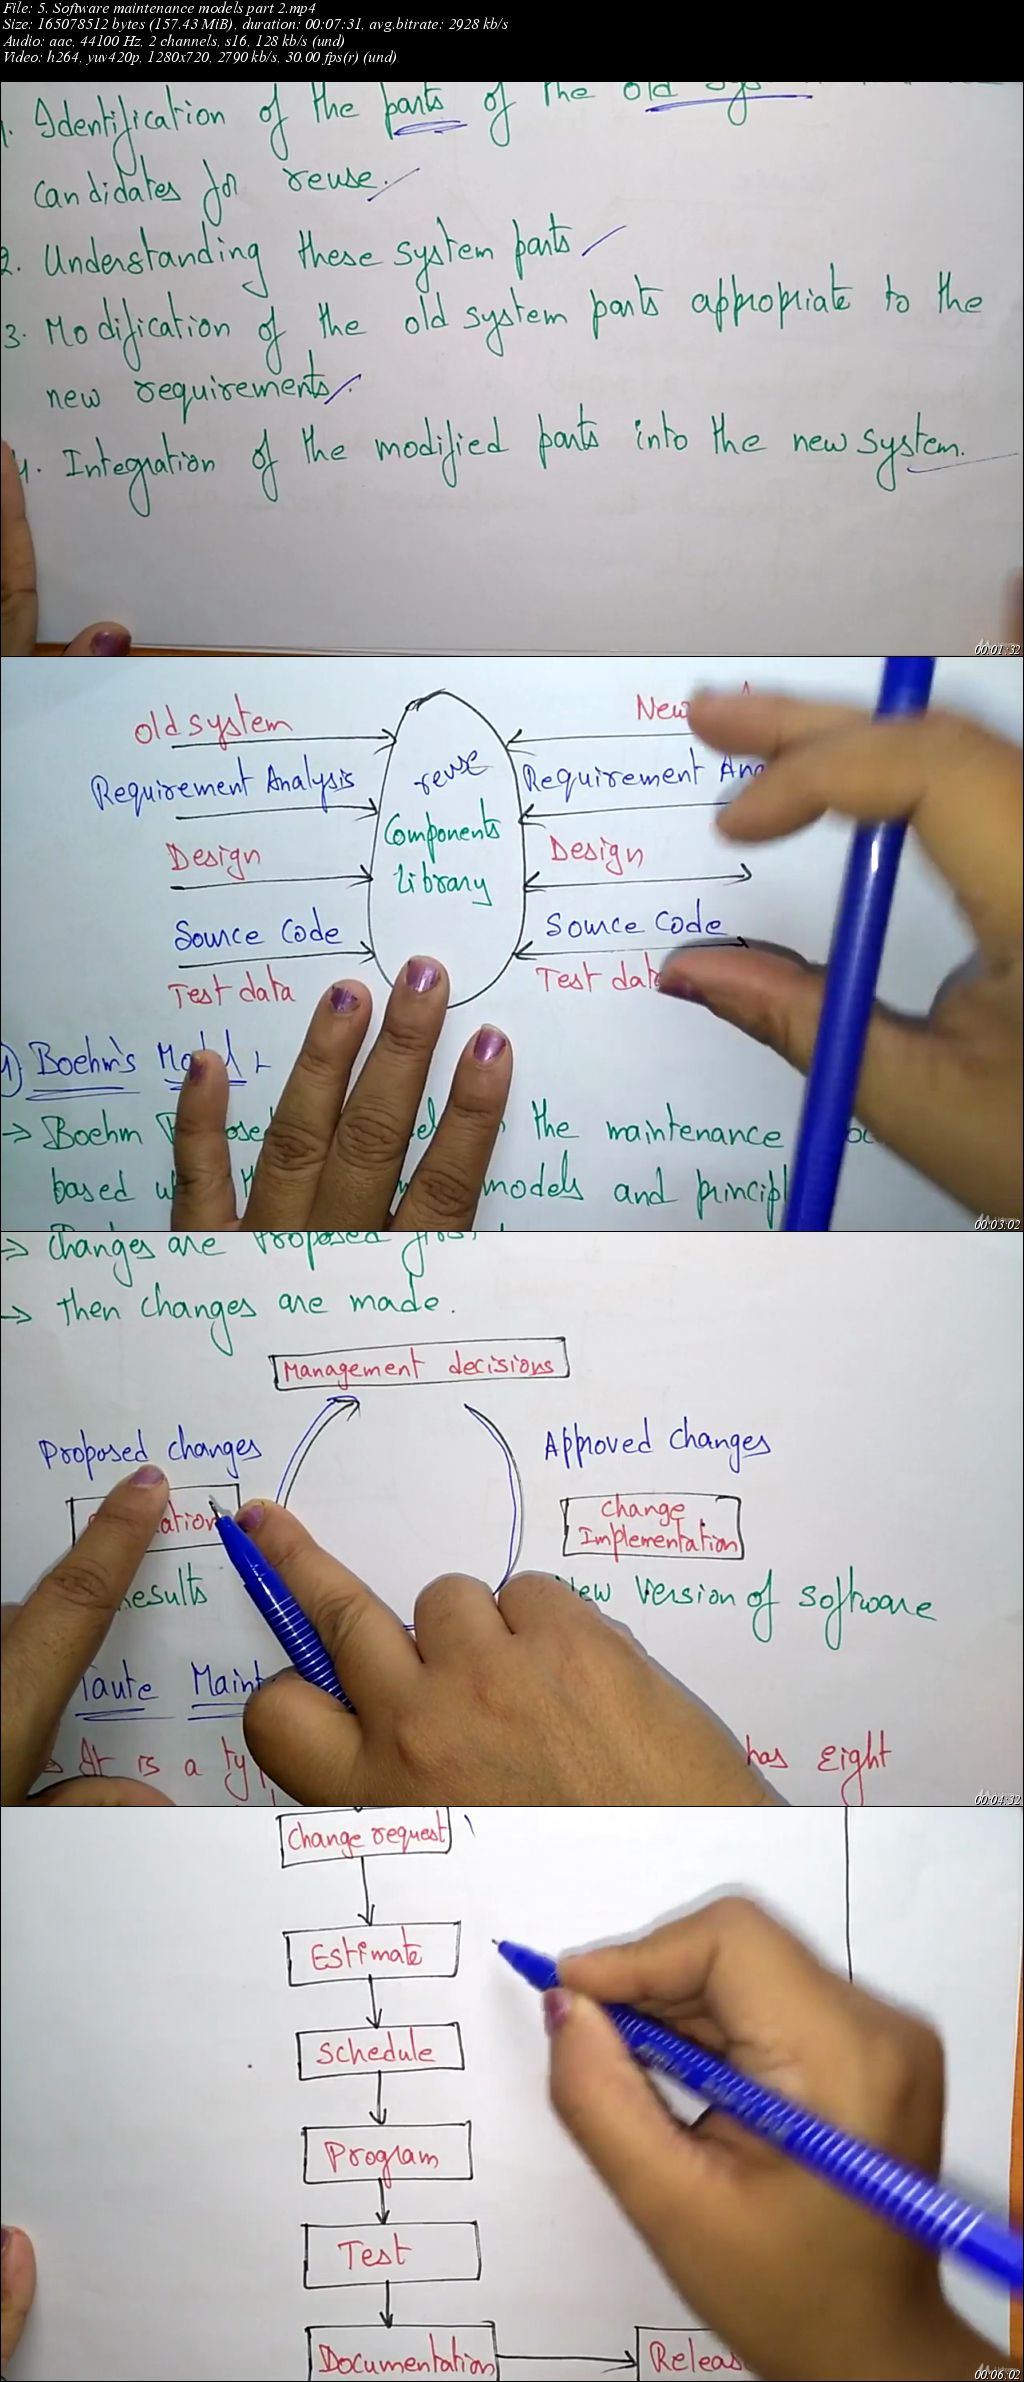 File: 5. Software maintenance models part 2.mp4
Size: 165078512 bytes (157.43 MiB), duration: 00:07:31, avg.bitrate: 2928 kb/s
Audio: aac, 44100 Hz, 2 channels, s16, 128 kb/s (und)
Video: h264, yuv420p, 1280x720, 2790 kb/s, 30.00 fps(r) (und)
1. Identification of the parts of the old
candidates for reuse.
2. Understanding these system parts
3. Modification of the old system parts appropriate to the
new requirements.
4. Integration of the modified parts into the new system.
00:01:32
old system New
Requirement Analysis reuse Requirement Ana
Components
Design Library Design
Source Code Source Code
Test data Test data
1) Boehm's Model
→ Boehm the maintenance
based models and principl
00:03:02
→ Changes are Proposed
→ then changes are made.
Management decisions
Proposed changes Approved changes
Change
Implementation
Results New Version of Software
Taute Maint
→ It is a ty has Eight
00:04:32
Change request
Estimate
Schedule
Program
Test
Documentation Releas
00:06:02